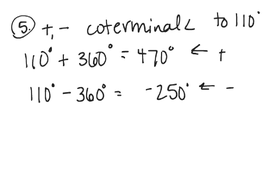 ⑤ +, - coterminal∠ to 110°
110° + 360° = 470° ← +
110° - 360° = -250° ← -